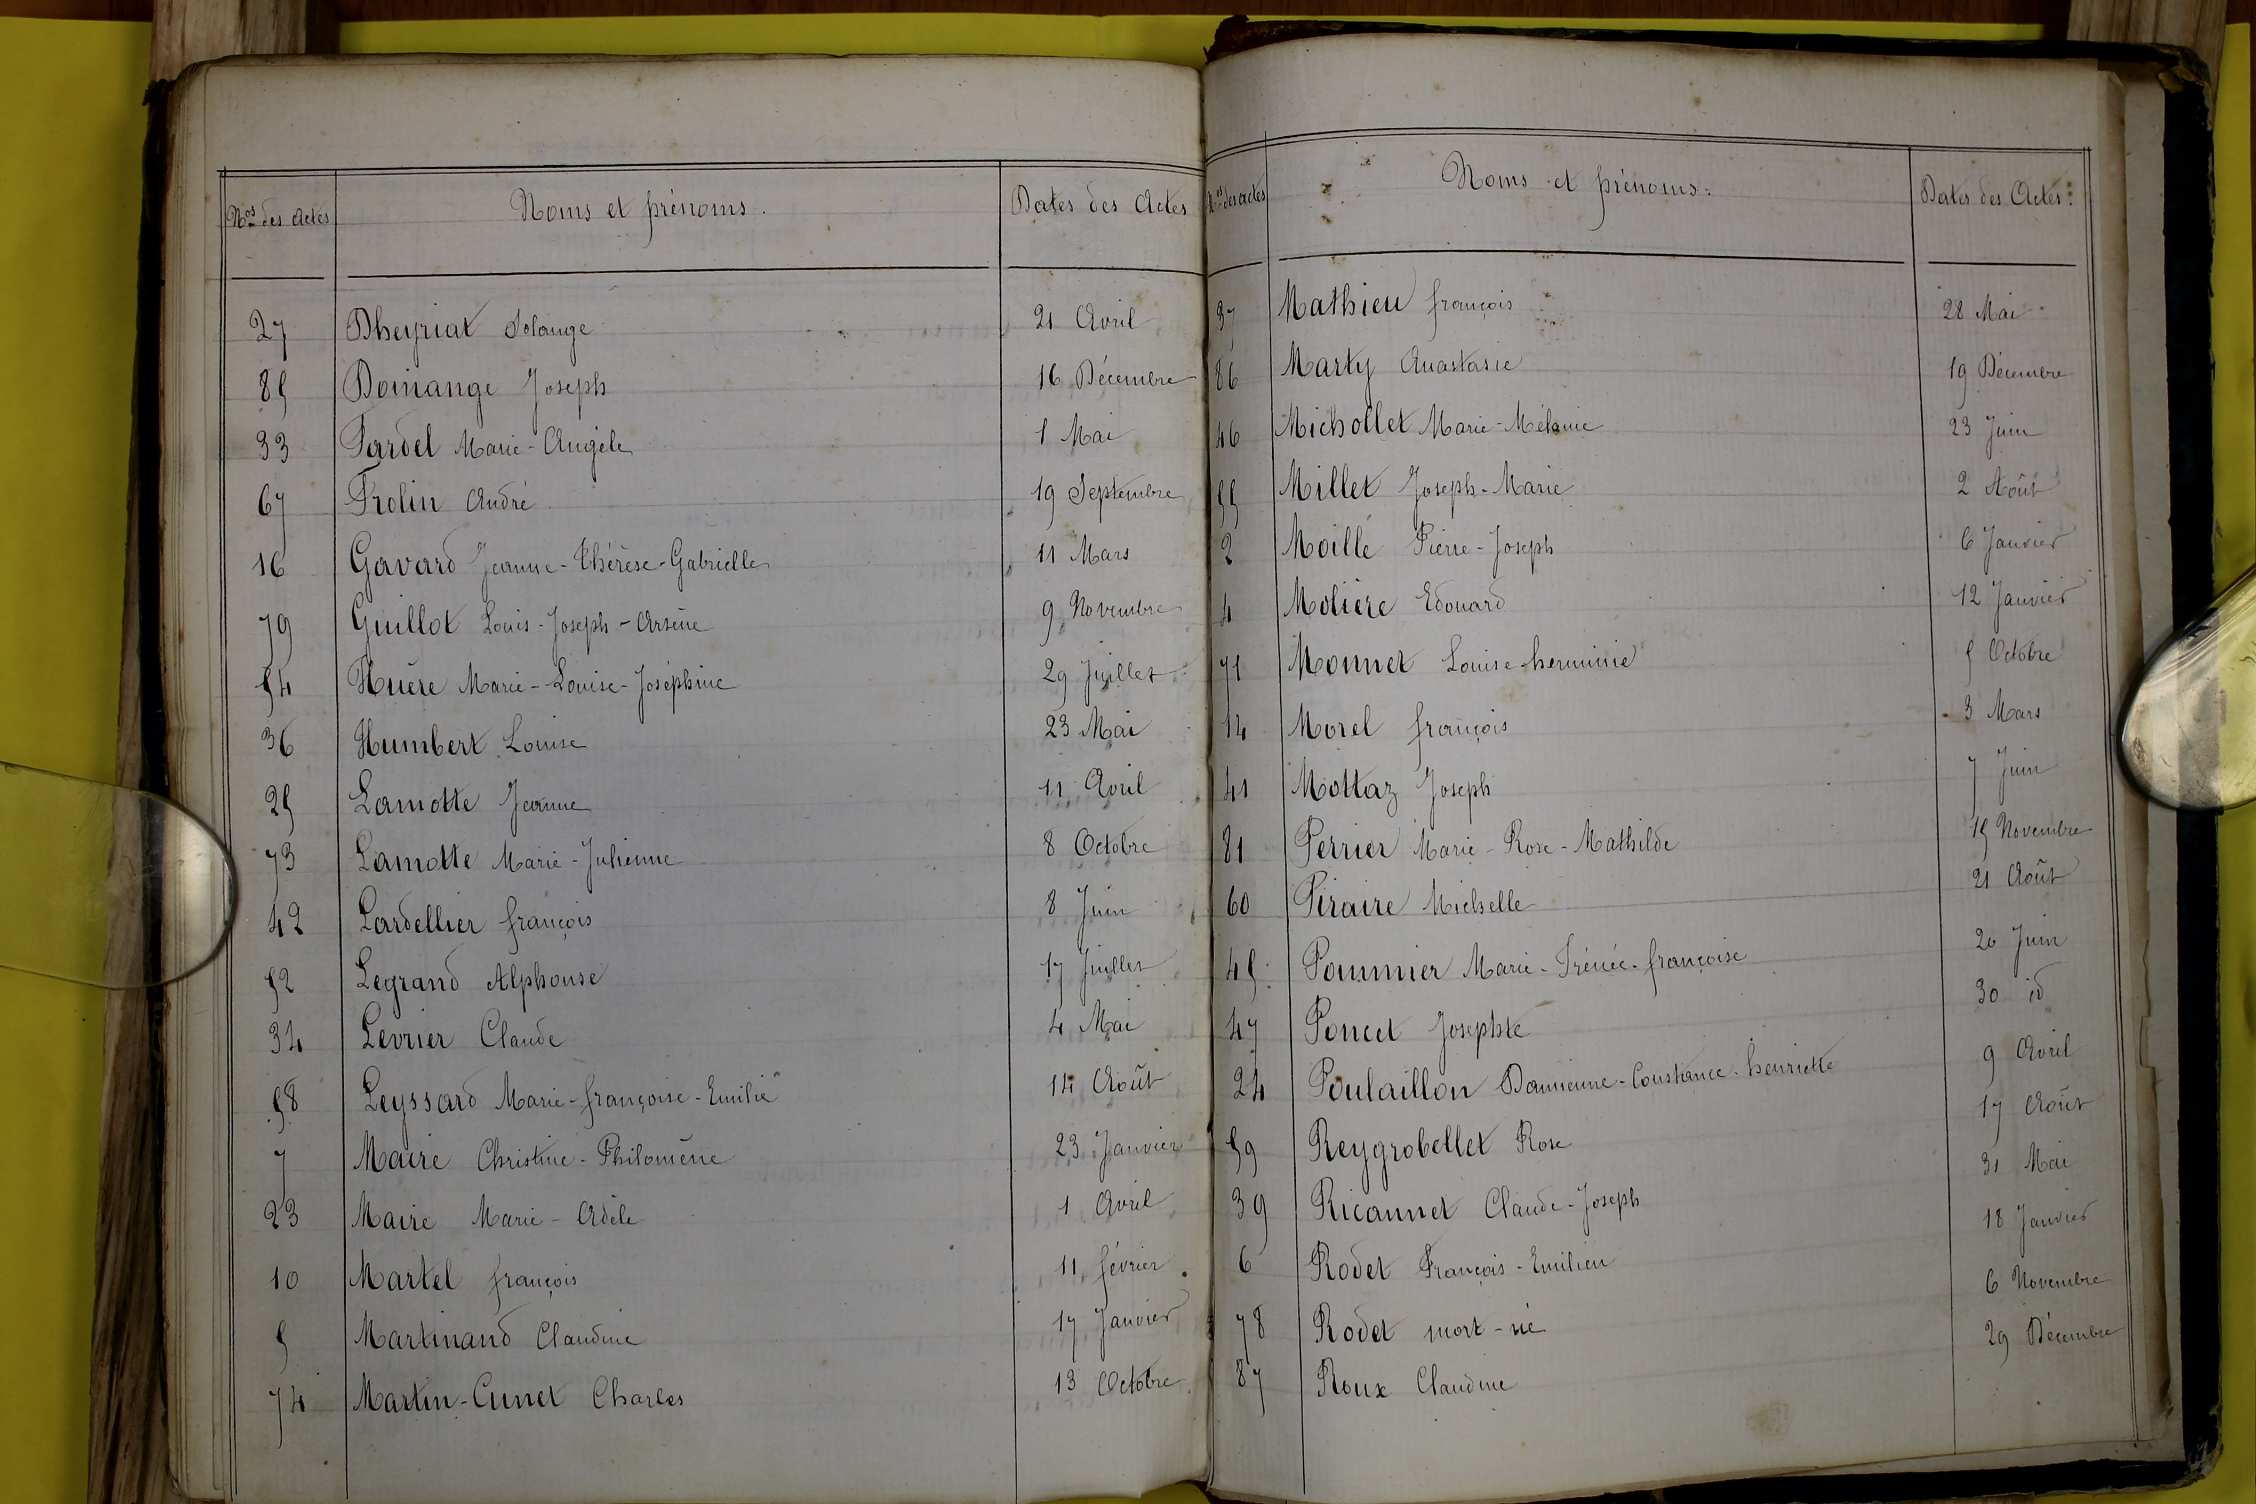 Nos des Actes Noms et prénoms. Dates des Actes
27 Dheyriat Solange 21 Avril
85 Domange Joseph 16 Décembre
33 Fardel Marie-Angèle 1 Mai
67 Frolin André 19 Septembre
16 Gavard Jeanne-Thérèse-Gabrielle 11 Mars
79 Guillot Louis-Joseph-Arsène 9 Novembre
54 Huère Marie-Louise-Joséphine 29 Juillet
36 Humbert Louise 23 Mai
25 Lamotte Jeanne 11 Avril
73 Lamotte Marie-Julienne 8 Octobre
42 Lardellier françois 8 Juin
52 Legrand Alphonse 17 Juillet
34 Levrier Claude 4 Mai
58 Leyssard Marie-françoise-Emilie 14 Août
7 Maire Christine-Philomène 23 Janvier
23 Maire Marie-Adèle 1 Avril
10 Martel françois 11 février
5 Martinand Claudine 17 Janvier
74 Martin-Cunet Charles 13 Octobre
Nos des actes Noms et prénoms. Dates des Actes
37 Mathieu françois 28 Mai
86 Marty Anastasie 19 Décembre
46 Michollet Marie-Mélanie 23 Juin
55 Millet Joseph-Marie 2 Août
2 Moille Pierre-Joseph 6 Janvier
4 Molière Edouard 12 Janvier
71 Monnet Louise-herminie 5 Octobre
14 Morel françois 3 Mars
41 Mottaz Joseph 7 Juin
81 Perrier Marie-Rose-Mathilde 15 Novembre
60 Piraire Michelle 21 Août
45 Pommier Marie-Irénée-françoise 20 Juin
47 Poncet Josephte 30 id
24 Poulaillon Damienne-Constance-henriette 9 Avril
59 Reygrobellet Rose 17 Août
39 Ricannet Claude-Joseph 31 Mai
6 Rodet François-Emilien 18 Janvier
78 Rodet mort-né 6 Novembre
87 Roux Claudine 29 Décembre